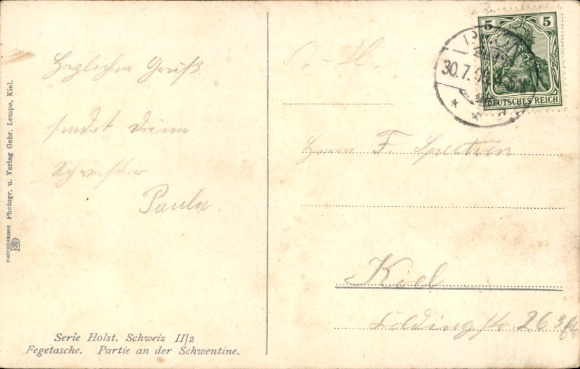 Herzlichen Gruß
sendet Deine
Schwester
Paula.
Photogr. u. Verlag Gebr. Lempe, Kiel.
Serie Holst. Schweiz II/2
Fegetasche. Partie an der Schwentine.
5
DEUTSCHES REICH
30.7.
S.-H.
Herrn F.
Kiel
26